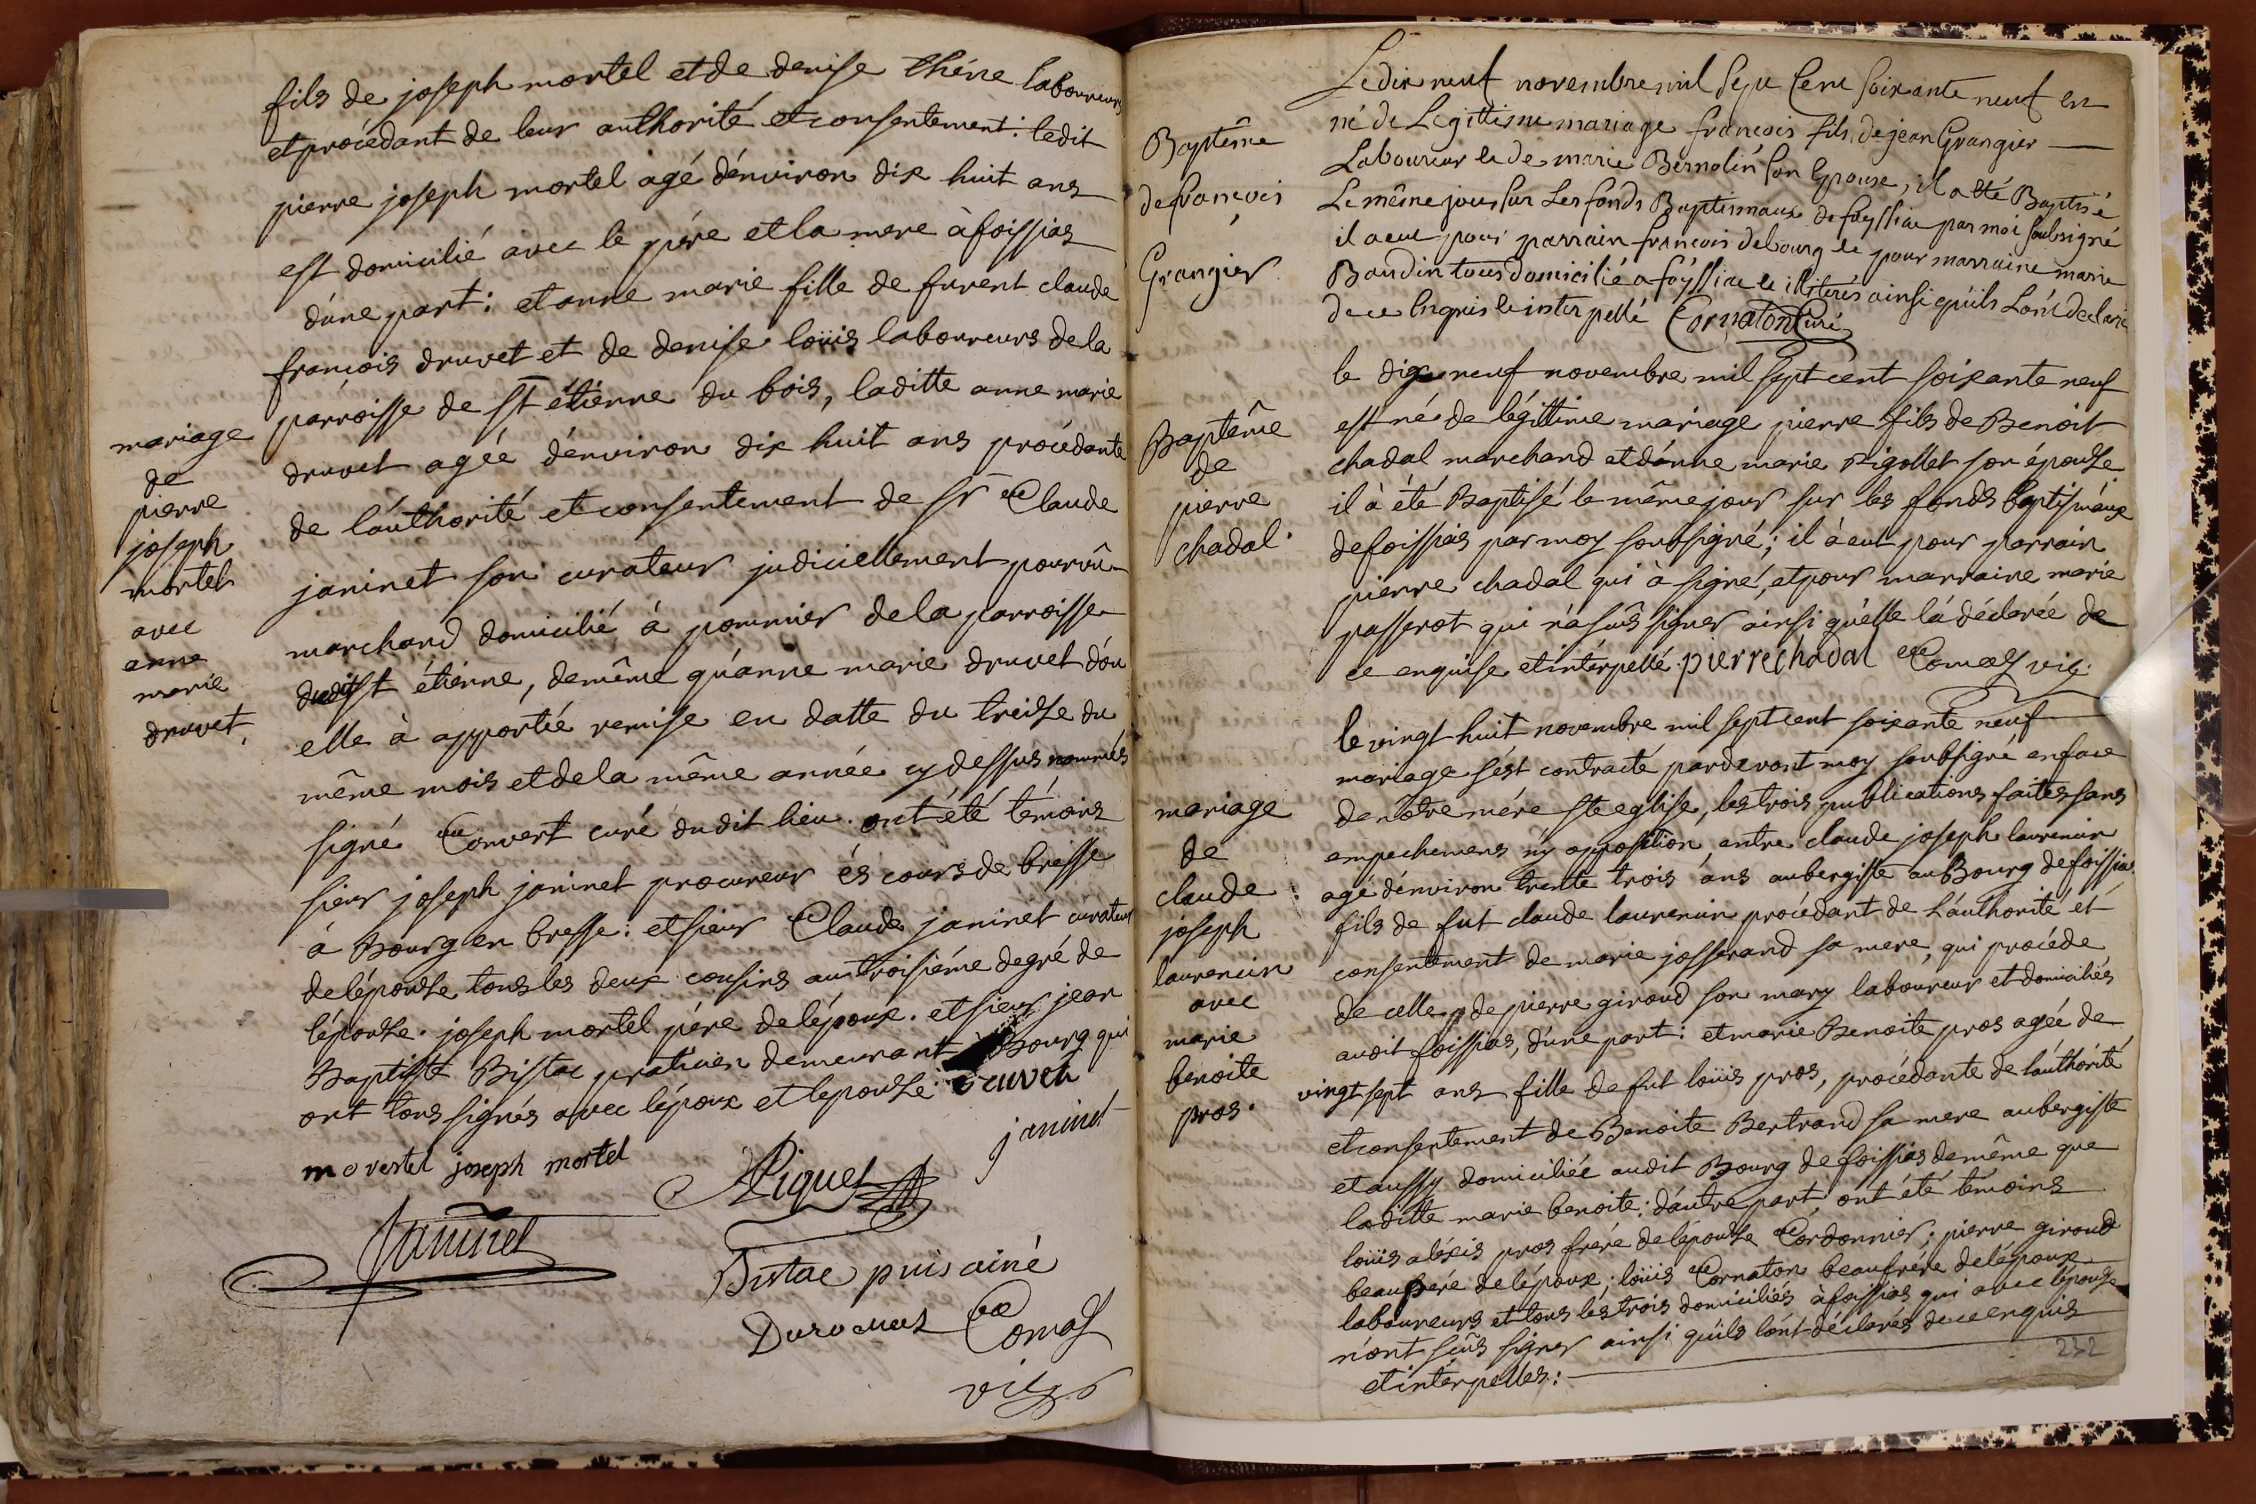 fils de joseph mortel et de denise théne laboureurs
et procédant de leur authorité et consentement : ledit
pierre joseph mortel agé d'énviron dix huit ans
est domicilié avec le pére et la mere à foissias
d'úne part : et anne marie fille de furent claude
françois druvet et de denise loüis laboureurs de la
parroisse de st étienne du bois, laditte anne marie
druvet agéé d'énviron dix huit ans procédante
de láuthorité et consentement de sr Claude
janinet son curateur judiciellement pourvû
marchand domicilié à pommier de la parroisse
dudit st étienne, de même qu'anne marie druvet d'ou
elle à apportée remise en datte du treidse du
même mois et de la même année cy dessus nommés
signé Convert curé du dit lieu. ont été témoins
sieur joseph janinet procureur és cours de bresse
à Bourg en bresse : et sieur Claude janinet curateur
de lépouse tous les deux cousins au troisiéme degré de
lépouse. joseph mortel pére de lépoux. et sieur jean
Baptiste Bistac praticien demeurant à Bourg qui
ont tous signés avec lépoux et lepouse druvet
janinet
mortel joseph mortel
Piquet
Janinet
Bistac puis ainé
Comas
vic
mariage
de
pierre
joseph
mortel
avec
anne
marie
druvet.
Baptême
de françois
Grangier
Le dix neuf novembre mil sept cent soixante neuf en
né de Légittime mariage françois fils de jean Grangier
Laboureur et de marie Bernolin son Epouse, il a été Baptisé
Le même jour sur Les fonds Baptismaux de foyssiac par moi soubsigné
il a eut pour parrain françois debourg et pour marraine marie
Baudin tous domicilié a foyssiac et illiterés ainsi qu'ils L'ont declaré
de ce Enquis et interpellé Cornaton Curé
Baptême
de
pierre
chadal.
le dix neuf novembre mil sept cent soixante neuf
est né de légittime mariage pierre fils de Benoit
chadal marchand et d'ánne marie Rigollet son épouse
il à été Baptisé le même jour sur les fonds baptismáux
de foissias par moy soubsigné ; il à eut pour parrain
pierre chadal qui à signé, et pour marraine marie
passerat qui n'a sçû signer ainsi qu'elle lá déclarée de
ce enquise et intérpellé. pierre chadal Comas vic.
mariage
de
claude
joseph
laurencin
avec
marie
benoite
pros.
le vingt huit novembre mil sept cent soixante neuf
mariage s'ést contracté pardevant moy soubsigné en face
de nôtre mére ste eglise, les trois publications faites sans
empechemens n'y opposition entre claude joseph laurencin
agé d'énviron trente trois ans aubergiste au Bourg de foissias
fils de fut claude laurencin procédant de L'áuthorité et
consentement de marie josserand sa mere, qui procéde
de celle de pierre giroud son mary laboureur et domiciliés
audit foissias, d'úne part : et marie Benoite pros agée de
vingt sept ans fille de fut loüis pros, procédante de l'áuthórité
et consentement de Benoite Bertrand sa mere aubergiste
et aussy domiciliée audit Bourg de foissias de même que
laditte marie benoite : d'áutre part, ont été témoins
loüis aléxis pros frére de lépouse Cordonnier ; pierre giroud
beaupére de lépoux ; loüis Cornaton beaufrére de lépoux
laboureurs et tous les trois domiciliés à foissias qui avec lépouse
n'ont sçûs signer ainsi qu'ils l'ont déclarés de ce enquis
et intérpellés :
232